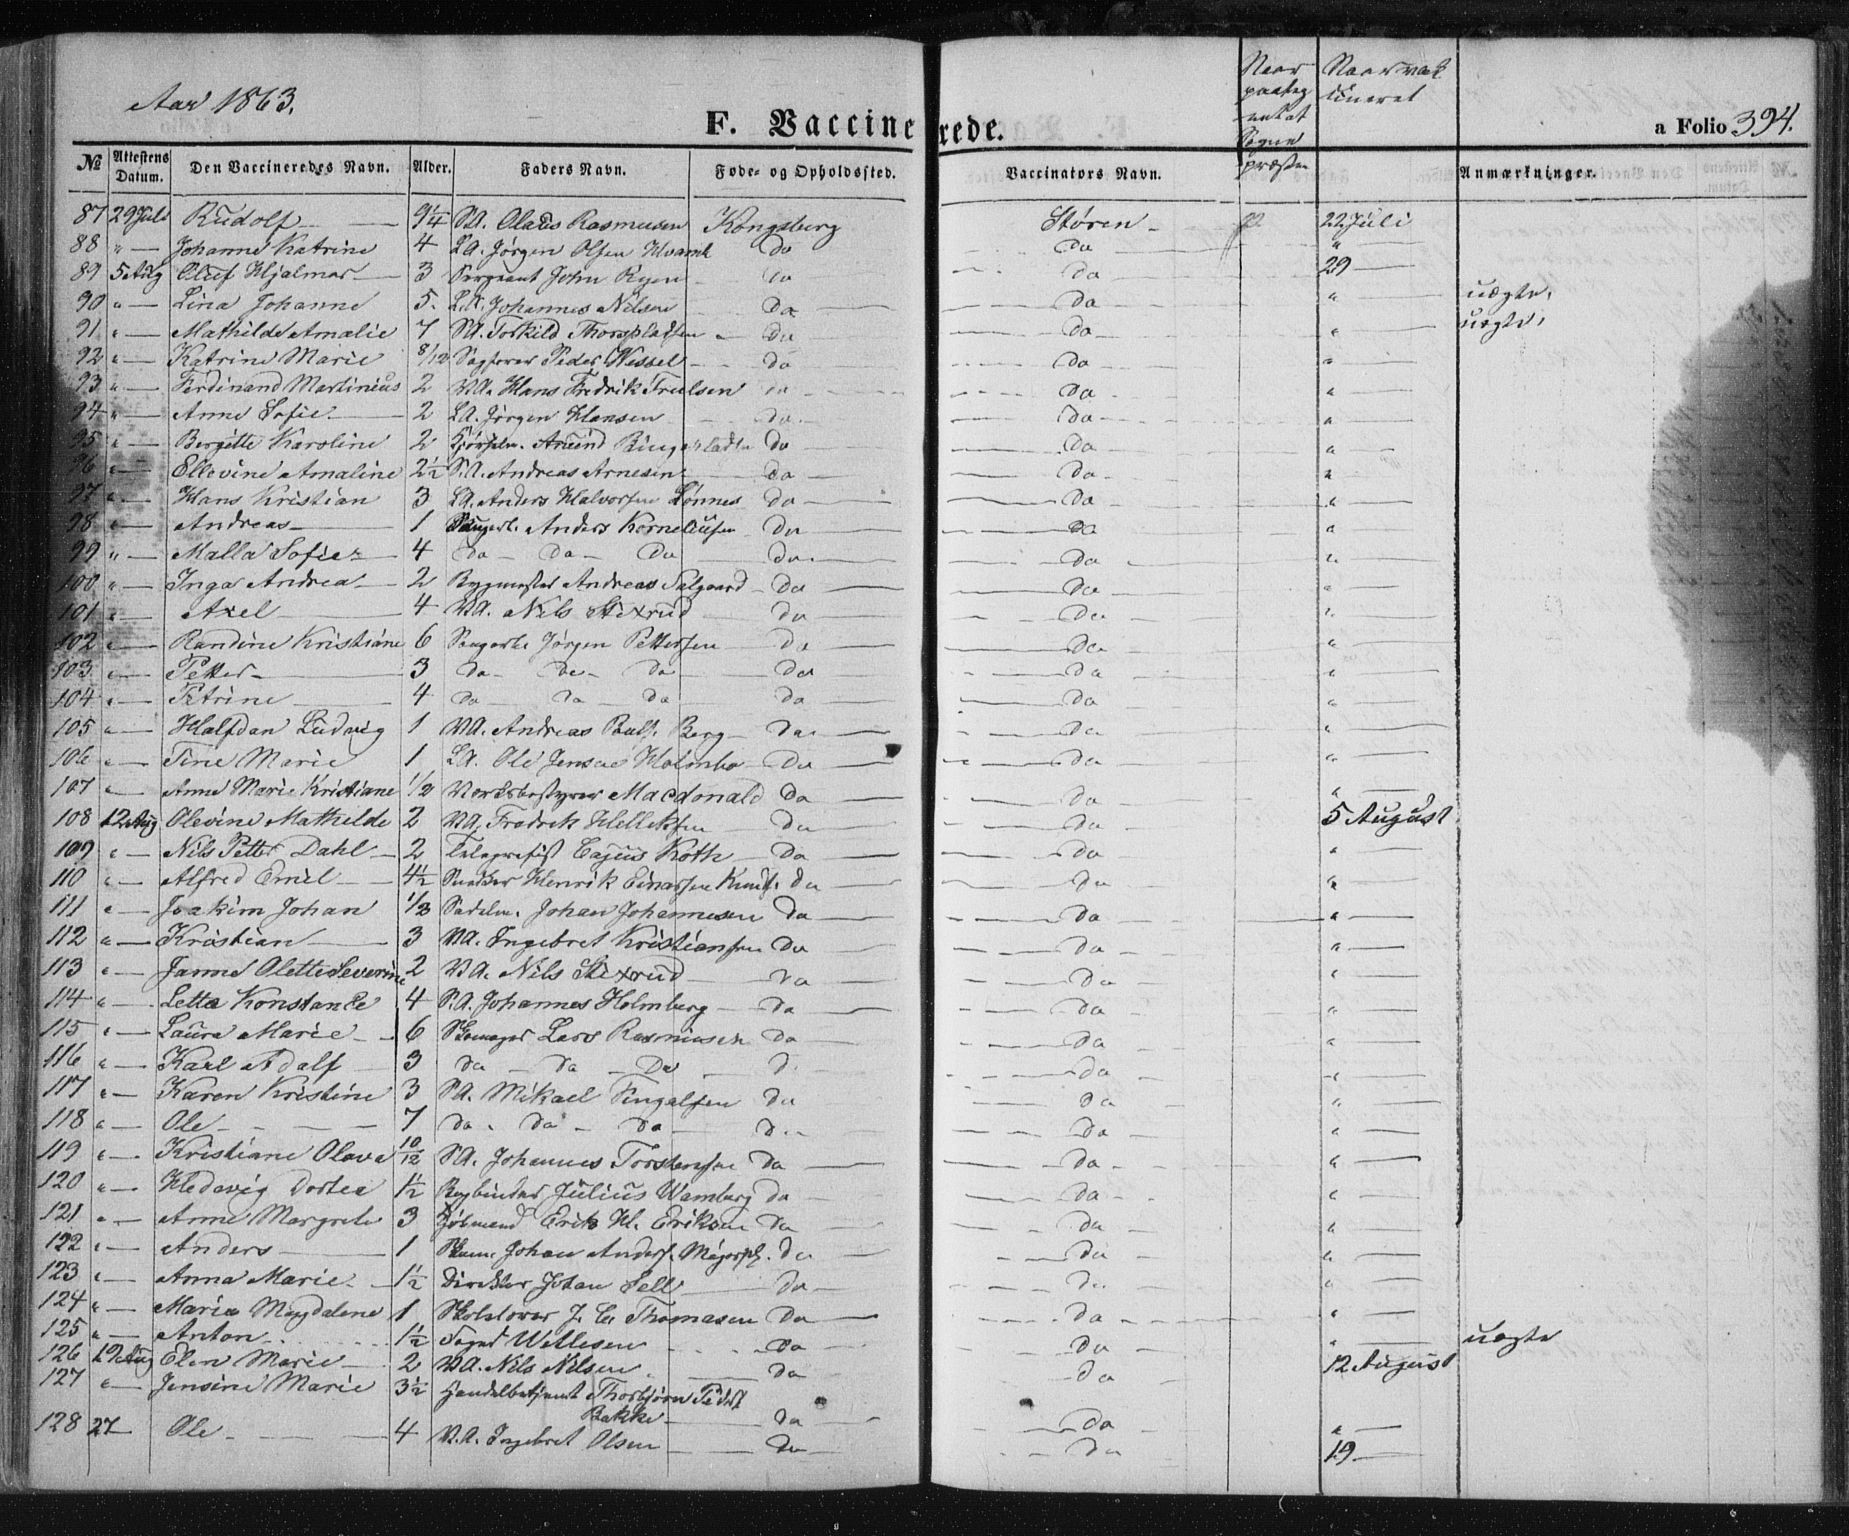 Aar 1863.
F. Vaccinerede.
a Folio 394.
Naar paateg Sogne præsten
Naar vak cineret
№ Attestens Datum. Den Vaccineredes Navn. Alder. Faders Navn. Føde- og Opholdssted. Vaccinators Navn. Anmærkninger.
87 29 Juli Rudolf 9 1/4 SA. Olaus Rasmusen Kongsberg Støren 22 Juli
88 " Johanne Katrine 4 LA. Jørgen Olsen Do Do "
89 5 Aug Oluf Hjalmar 3 Sergeant John Ryen Do Do 29
90 " Lina Johanne 5. LA. Johannes Nilsen Do Do " uægte.
91. " Mathilde Amalie 7 SA. Torkild Do Do " uægte.
92 " Katrine Marie 8/12 Sagfører Peder Wessel Do Do "
93 " Ferdinand Martinius 2 VA. Hans Fredrik Do Do "
94 " Anne Sofie 2 LA. Jørgen Hansen Do Do "
95 " Bergitte Karoline 2 Do Do "
96 " Ellevine Amaline 2 1/2 SA. Andreas Arnesen Do Do "
97 " Hans Kristian 3 LA. Anders Halvorsen Lønnes Do Do "
98 " Andreas 1 Anders Korneliusen Do Do "
99 " Malla Sofie 4 Do Do Do Do Do "
100 " Inga Andrea 2 Bygmester Andreas Do Do "
101 " Axel 4 VA. Nils Stixrud Do Do "
102 " Randine Kristiane 6 Jørgen Pettersen Do Do "
103 " Petter 3 Do Do Do Do Do "
104 " Petrine 4 Do Do Do Do Do "
105 " Halfdan Ludvig 1 VA. Andreas Berg Do Do "
106 " Tine Marie 1 LA. Ole Jensen Holmbo Do Do "
107 " Anne Marie Kristiane 1/2 Værksbestyrer Macdonald Do Do "
108 12 Aug Olevine Mathilde 2 VA. Fredrik Helleksen Do Do 5 August
109 " Nils Petter Dahl 2 Telegrafist Cajus Koth Do Do "
110 " Alfred Emil 4 1/2 Snekker Henrik Einarsen Do Do "
111 " Joakim Johan 1/3 Sadelm. Johan Johannesen Do Do "
112 " Kristian 3 VA. Ingebret Kristiansen Do Do "
113 " Janne Olette Severine 2 VA. Nils Stixrud Do Do "
114 " Letta Konstance 4 SA. Johannes Holmberg Do Do "
115 " Laura Marie 6 Skomager Lars Rasmusen Do Do "
116 " Karl Adolf 3 Do Do Do D. Do "
117 " Karen Kristine 3 SA. Mikael Do Do "
118 " Ole 7 Do Do Do D. Do "
119 " Kristiane Olava 10/12 SA. Johannes Torstensen Do Do "
120 " Hedevig Dortea 1 1/2 Bogbinder Julius Wamberg Do Do "
121 " Anne Margrete 3 Erik H. Eriksen Do Do "
122 " Anders 1 Skom. Johan Anders. Do Do "
123 " Anna Marie 1 1/2 Direktør Johan Sell Do Do "
124 " Maria Magdalene 1 Skolelærer J. C. Thomasen Do Do "
125 " Anton 1 1/2 Do Do " uægte
126 19 Aug Elen Marie 2 VA. Nils Nilsen Do Do 12 August
127 " Jensine Marie 3 1/2 Handelbetjent Thorbjørn Peders
Bakke Do Do "
128 27 Ole 4 VA. Ingebret Olsen Do Do 19